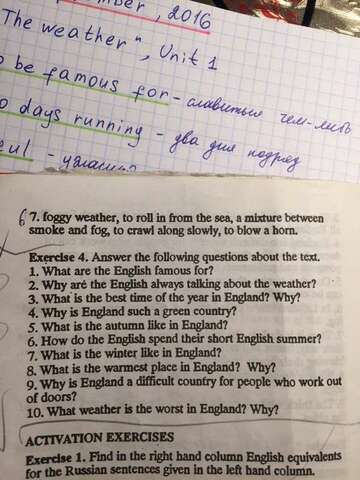 ember, 2016
The weather", Unit 1
o be famous for - славиться чем-либо
o days running - два дня подряд
6 7. foggy weather, to roll in from the sea, a mixture between
smoke and fog, to crawl along slowly, to blow a horn.
Exercise 4. Answer the following questions about the text.
1. What are the English famous for?
2. Why are the English always talking about the weather?
3. What is the best time of the year in England? Why?
4. Why is England such a green country?
5. What is the autumn like in England?
6. How do the English spend their short English summer?
7. What is the winter like in England?
8. What is the warmest place in England? Why?
9. Why is England a difficult country for people who work out
of doors?
10. What weather is the worst in England? Why?
ACTIVATION EXERCISES
Exercise 1. Find in the right hand column English equivalents
for the Russian sentences given in the left hand column.